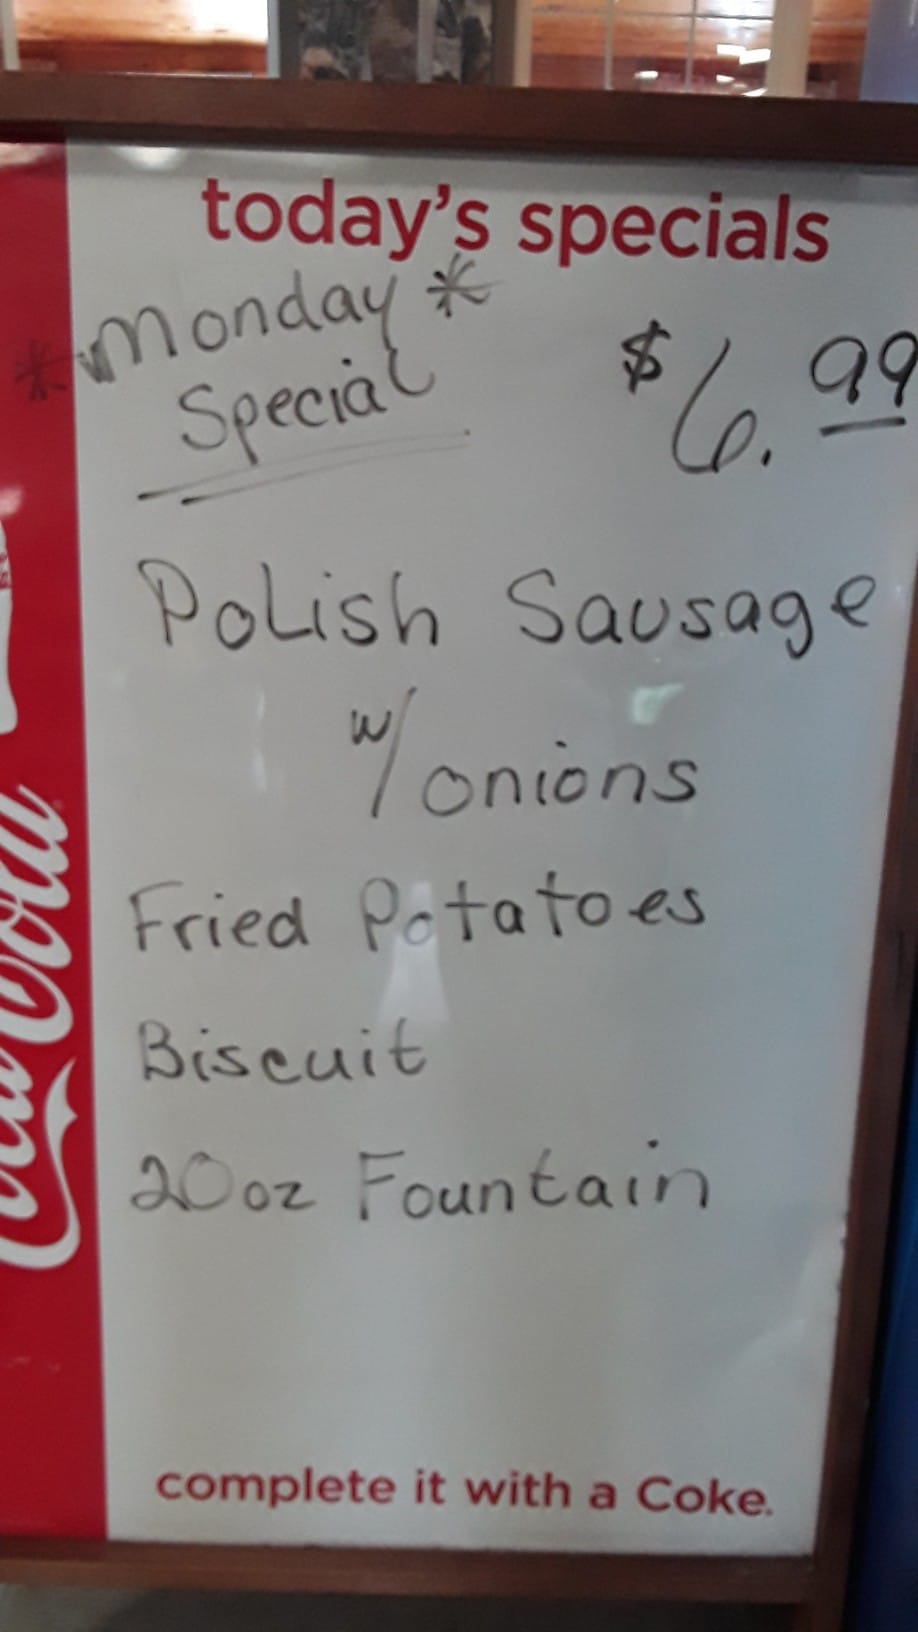 today's specials
*Monday*
Special
$6.99
Polish Sausage
w/onions
Fried Potatoes
Biscuit
20oz Fountain
complete it with a Coke.
Coca-Cola